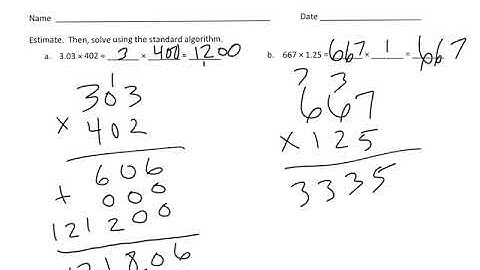 Name Date
Estimate. Then, solve using the standard algorithm.
a. 3.03 × 402 ≈ 3 × 400 = 1200
b. 667 × 1.25 ≈ 667 × 1 = 667
1
303
× 402
606
+ 000
121200
121806
3 3
667
× 125
3335